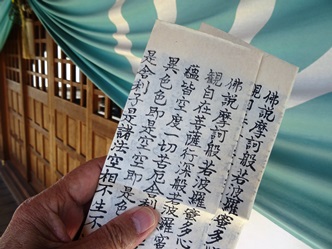 佛説摩訶般若波羅蜜多
觀自
佛説摩訶般若波羅蜜多心
觀自在菩薩行深般若波羅蜜
蘊皆空度一切苦厄舎利
異色色即是空空即是色
是舎利子是諸法空相不生不